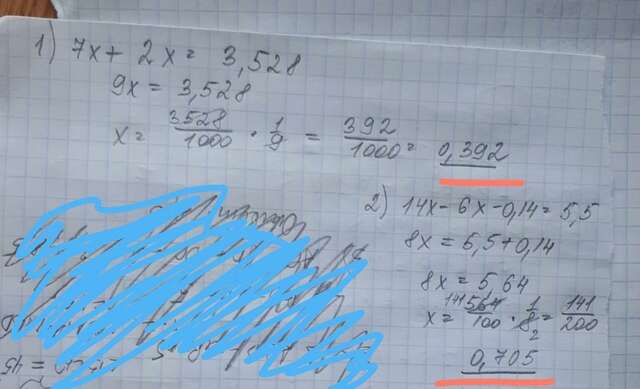 1) 7x + 2x = 3,528
9x = 3,528
x = 3528/1000 · 1/9 = 392/1000 = 0,392
2) 14x - 6x - 0,14 = 5,5
8x = 5,5 + 0,14
8x = 5,64
x = 141 564/100 · 1/8 2 = 141/200
0,705
= 45